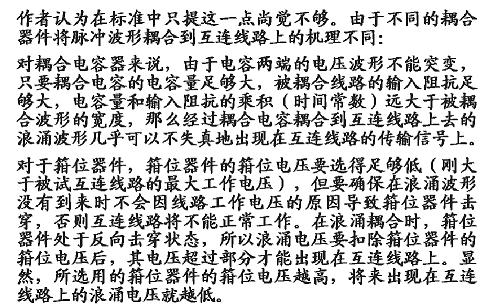 作者认为在标准中只提这一点尚觉不够。由于不同的耦合
器件将脉冲波形耦合到互连线路上的机理不同：
对耦合电容器来说，由于电容两端的电压波形不能突变，
只要耦合电容的电容量足够大，被耦合线路的输入阻抗足
够大，电容量和输入阻抗的乘积（时间常数）远大于被耦
合波形的宽度，那么经过耦合电容耦合到互连线路上去的
浪涌波形几乎可以不失真地出现在互连线路的传输信号上。
对于箝位器件，箝位器件的箝位电压要选得足够低（刚大
于被试互连线路的最大工作电压），但要确保在浪涌波形
没有到来时不会因线路工作电压的原因导致箝位器件击
穿，否则互连线路将不能正常工作。在浪涌耦合时，箝位
器件处于反向击穿状态，所以浪涌电压要扣除箝位器件的
箝位电压后，其电压超过部分才能出现在互连线路上。显
然，所选用的箝位器件的箝位电压越高，将来出现在互连
线路上的浪涌电压就越低。